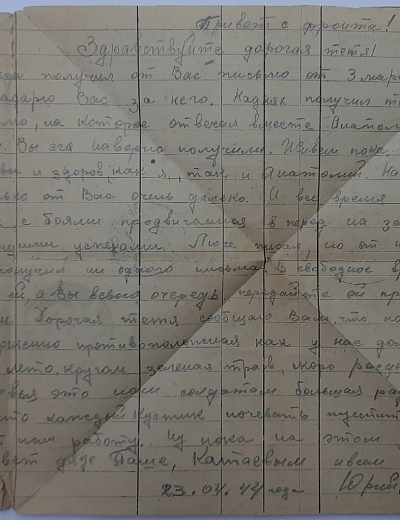 Привет с фронта!
Здравствуйте дорогая тетя!
получил от Вас письмо от 3 мар
Вас за него. Надняк получил
на которое отвечал вместе Анатол
Вы его наверно получили. Живем пока
и здоров, как я, так и Анатолий. На
от Вас очень далеко. И все время
с боями продвигаемся в перед на за
успехами. Люсе писал, но от н
получил ни одного письма. В свободное вр
ей, а Вы всвою очередь передайте ей пр
Дорогая тетя сообщаю Вам, что на
противоположная как у нас до
лето, кругом зеленая трава, море
это нам солдатам большая ра
что каждый кустик ночевать пустит
нам работу. Ну пока на этом
дяде Паше, Катаевым и всем
23.04.44 года Юрий